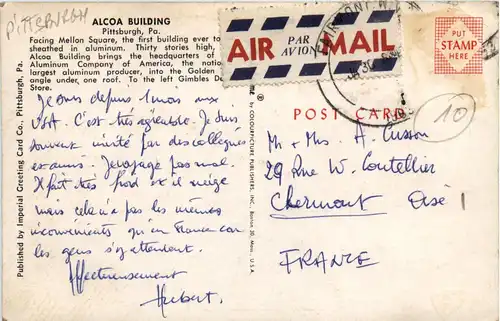 Pittsburgh
ALCOA BUILDING
Pittsburgh, Pa.
Facing Mellon Square, the first building ever to
sheathed in aluminum. Thirty stories high,
Alcoa Building brings the headquarters of
Aluminum Company of America, the nation
largest aluminum producer, into the Golden
angle under, one roof. To the left Gimbles De
Store.
Published by Imperial Greeting Card Co. Pittsburgh, Pa.
Je suis depuis 1 mois aux
USA. C'est très agréable. Je suis
souvent invité par des collègues
et amis. Je voyage pas mal.
Il fait très froid et il neige
mais cela n'a pas les mêmes
inconvénients qu'en France car
les gens s'y attendent.
Affectueusement
Hubert.
AIR PAR AVION MAIL
PUT
STAMP
HERE
POST CARD
10
by COLOURPICTURE PUBLISHERS, INC., Boston 30, Mass., U.S.A.
Mr & Mrs A. Cusson
29 Rue W.
Clermont Oise
FRANCE